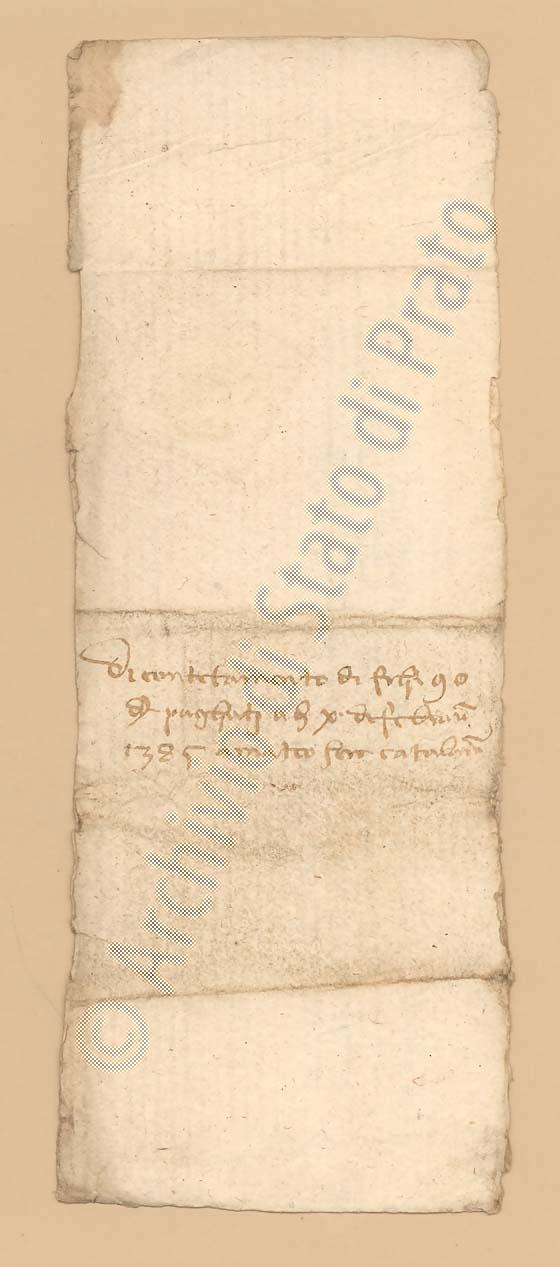 Di contetamento di frchi 90
di paghati a dì x di febraio
1385 a matteo ser catalano
© Archivio di Stato di Prato